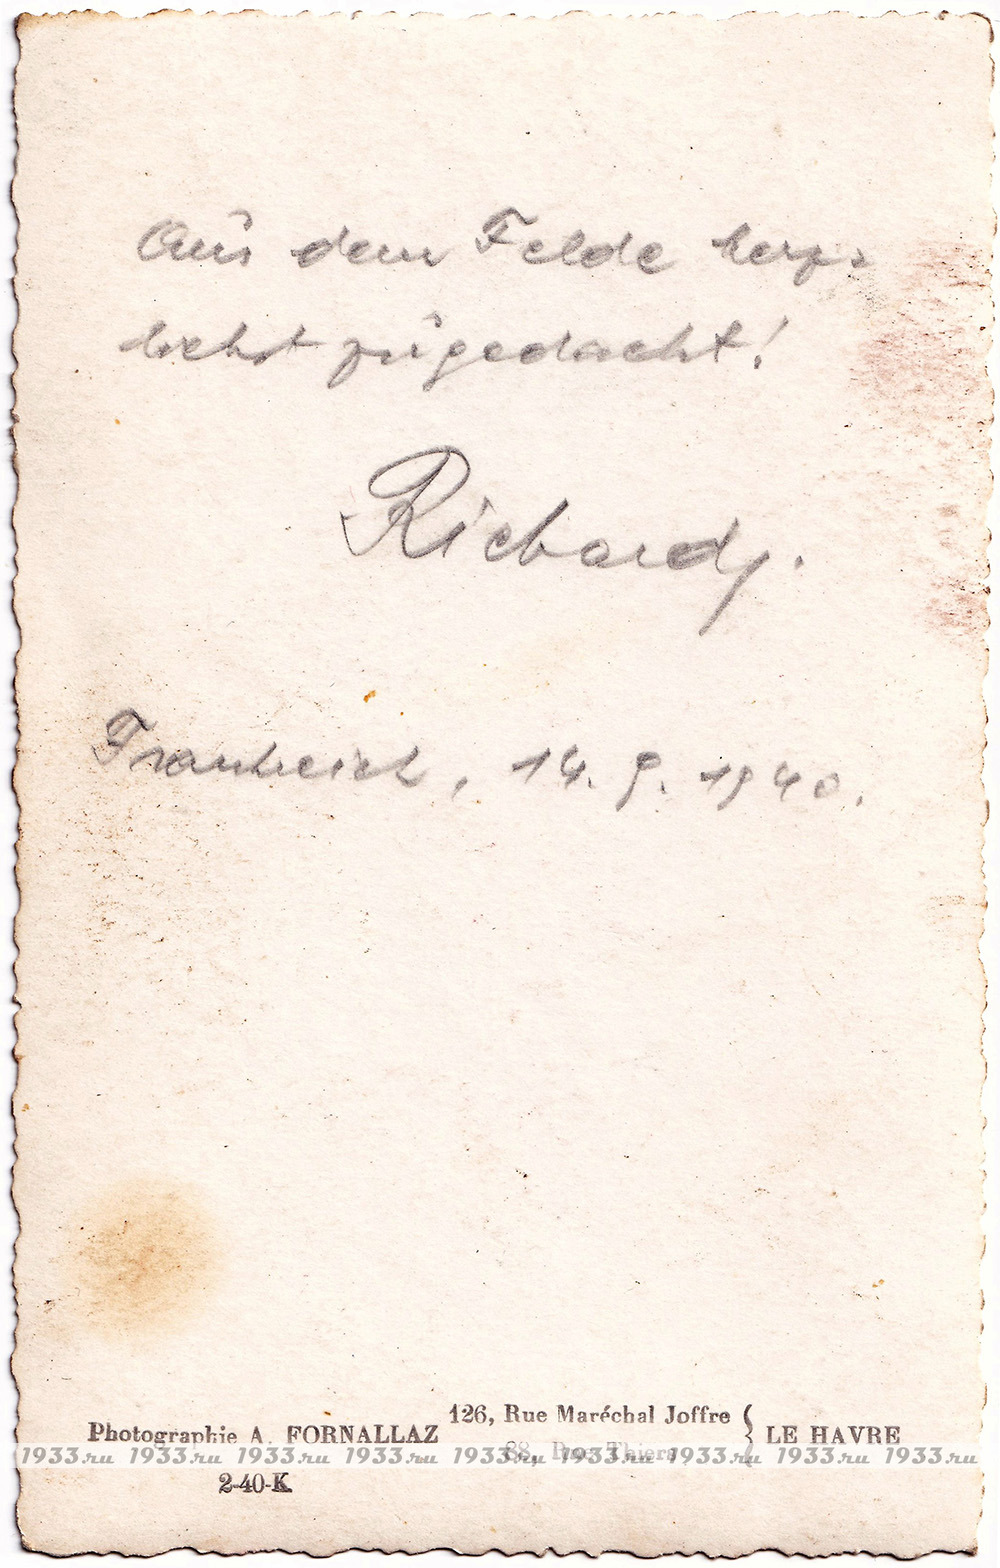 Aus dem Felde herz-
lichst zugedacht!
Richard.
Frankreich, 14. 9. 1940.
Photographie A. FORNALLAZ
126, Rue Maréchal Joffre
88, Rue Thiers
LE HAVRE
1933.ru 1933.ru 1933.ru 1933.ru 1933.ru 1933.ru 1933.ru 1933.ru 1933.ru
2-40-K